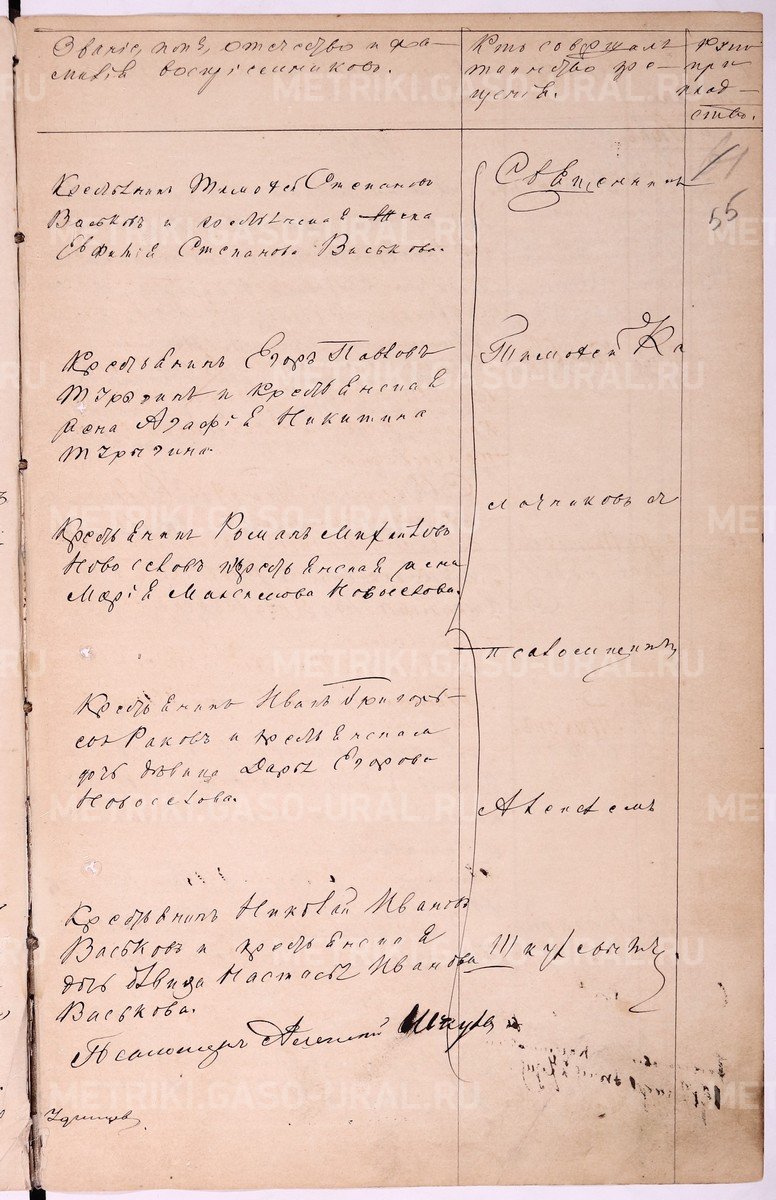 Званіе, имя, отчество и фа-
милія воспріемниковъ.
Кто совершалъ
таинство кре-
щенія.
Руко
при
клад-
ство.
41
55
Крестьянинъ Тимофей Степановъ
Васьковъ и крестьянская жена
Евфимія Степанова Васькова.
Крестьянинъ Егоръ Павловъ
и крестьянская
жена Агафія Никитина
Крестьянинъ Романъ
Новоселовъ крестьянская жена
Марія Максимова Новоселова.
Крестьянинъ Иванъ Григорь-
евъ Раковъ и крестьянская
дочь дѣвица Дарья Егорова
Новоселова.
Крестьянинъ Николай Ивановъ
Васьковъ и крестьянская
дочь дѣвица Настасья Иванова
Васькова.
Псаломщикъ Алексій
Священникъ
Тимофей Ка
мочниковъ съ
псаломщикомъ
Алексѣемъ
METRIKI.GASO-URAL.RU